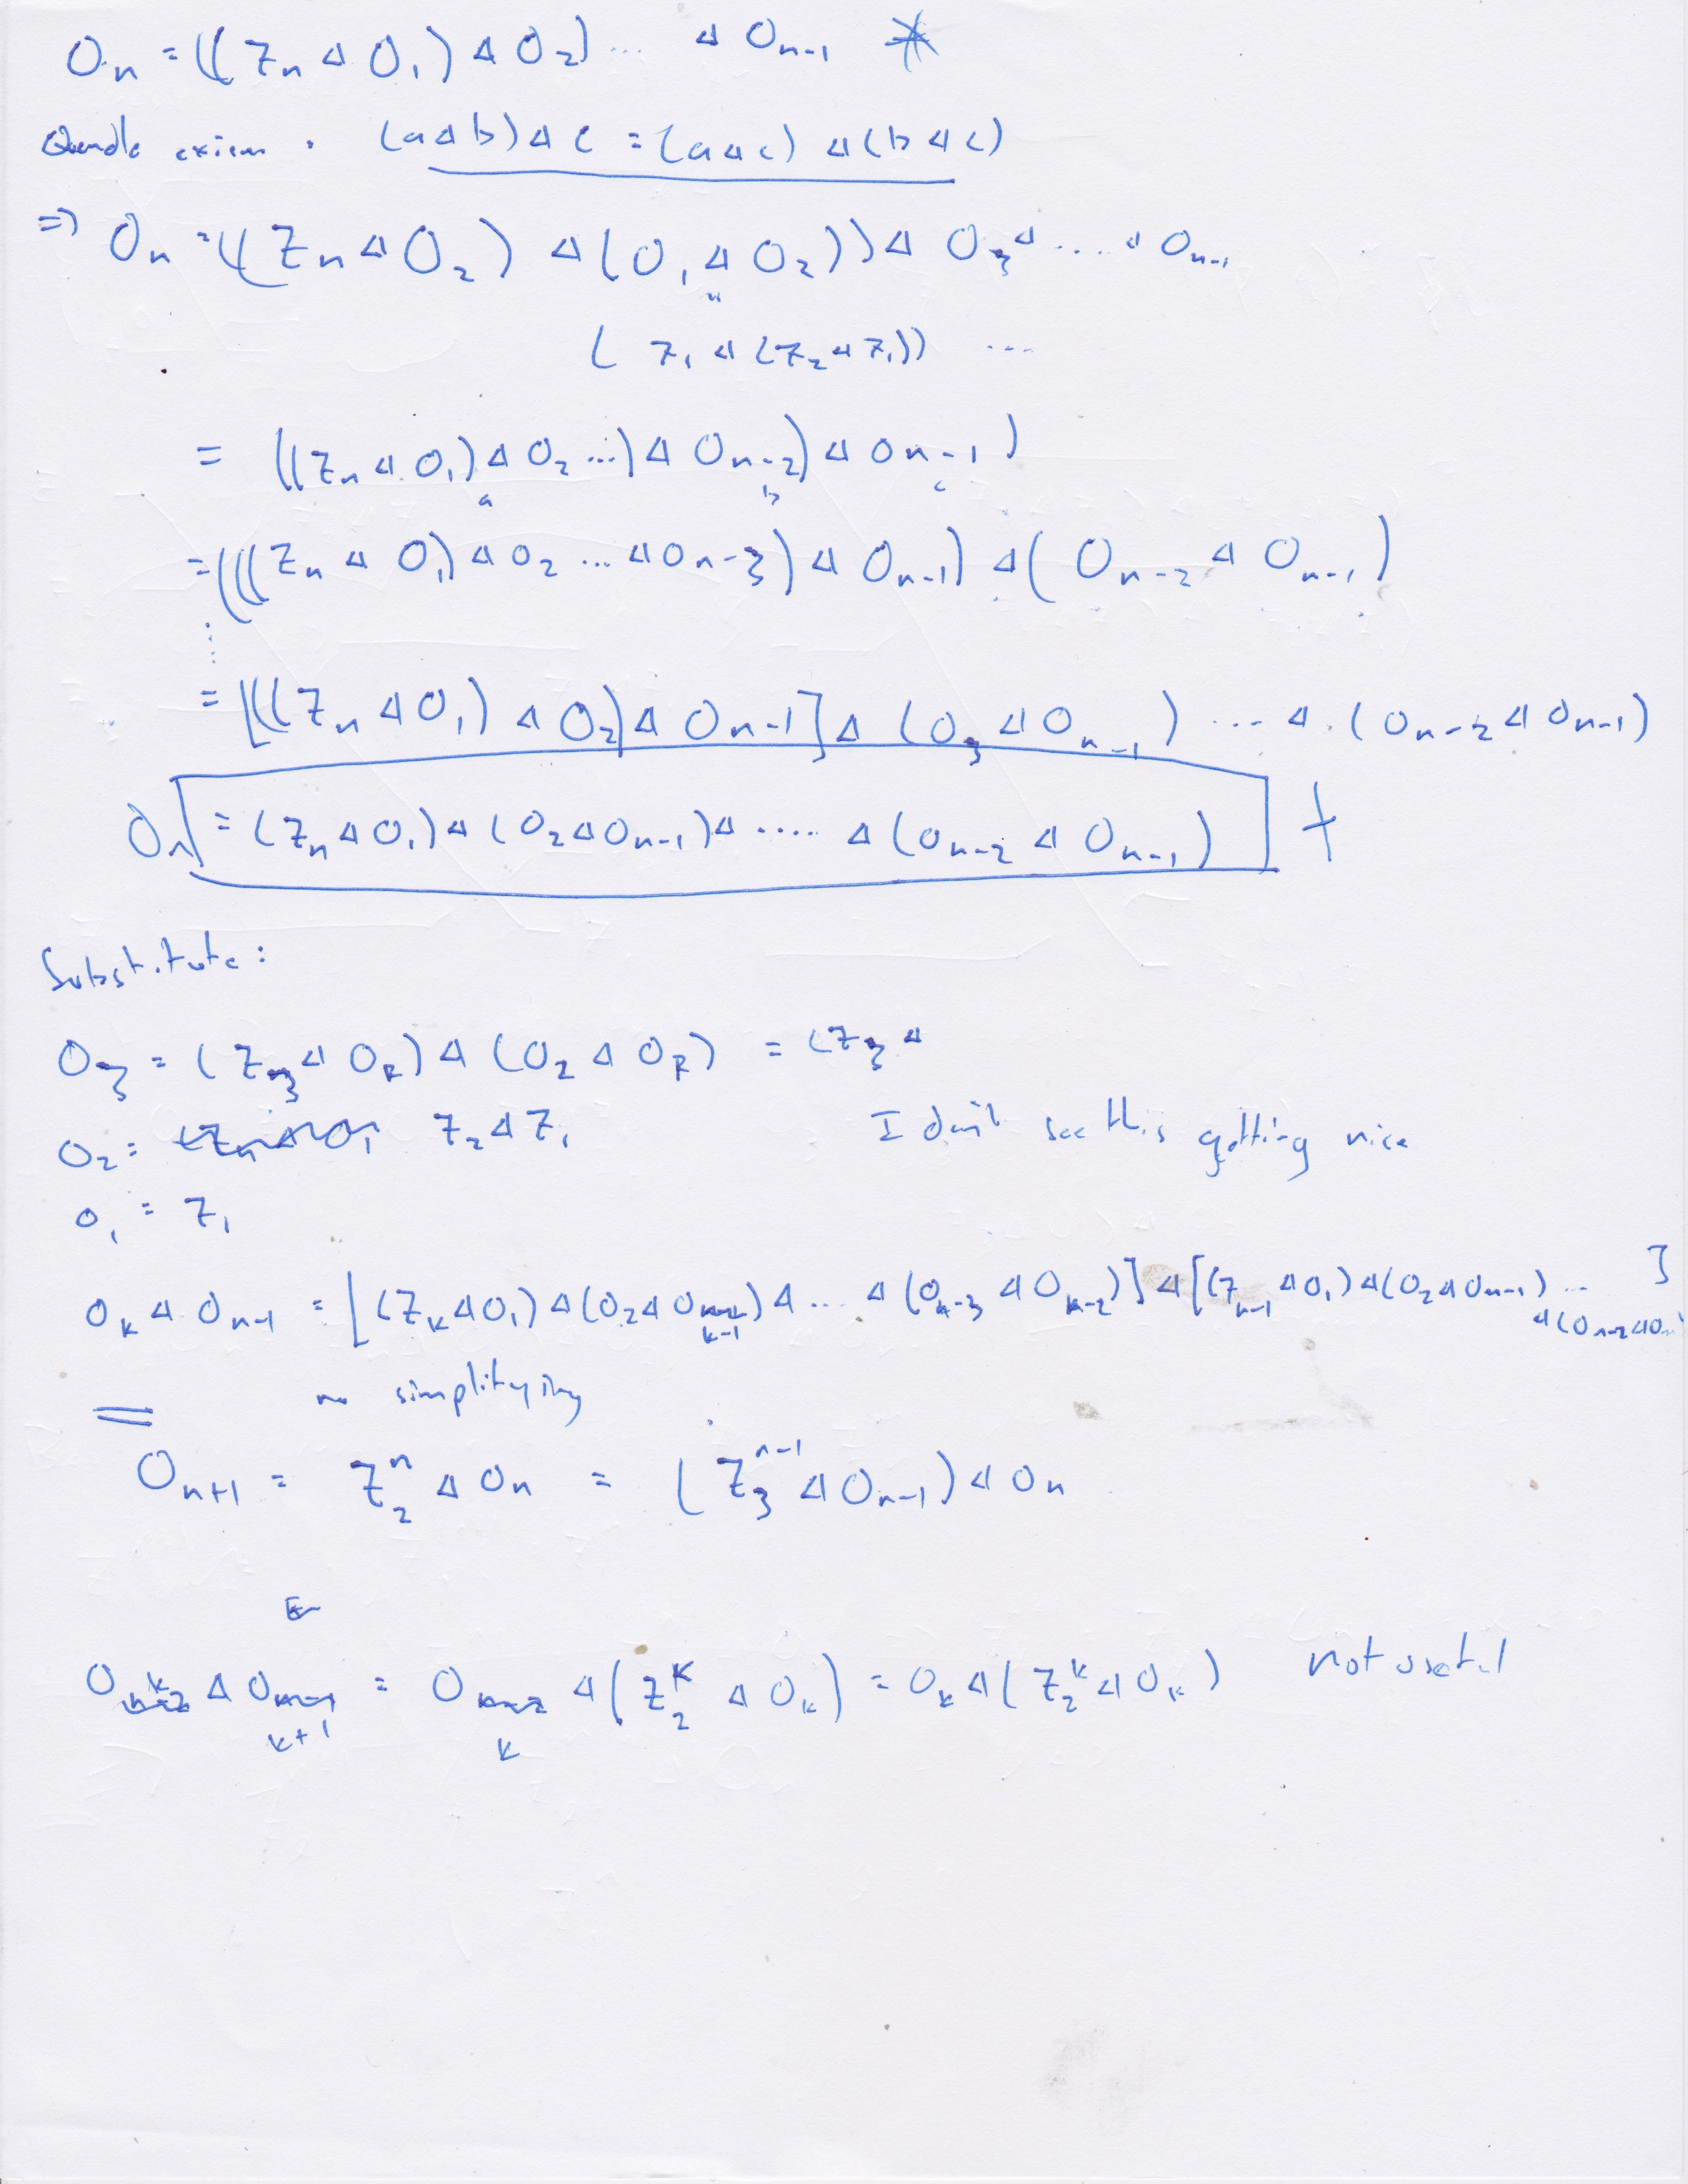 O_n = ((z_n ◁ O_1) ◁ O_2) ... ◁ O_{n-1} *
Quandle axiom . (a ◁ b) ◁ c = (a ◁ c) ◁ (b ◁ c)
=> O_n = ((z_n ◁ O_2) ◁ (O_1 ◁ O_2)) ◁ O_3 ◁ .... ◁ O_{n-1}
(z_1 ◁ (z_2 ◁ z_1)) ...
= ((z_n ◁ O_1) ◁ O_2 ...) ◁ O_{n-2}) ◁ O_{n-1})
a b c
= (((z_n ◁ O_1) ◁ O_2 ... ◁ O_{n-3}) ◁ O_{n-1}) ◁ (O_{n-2} ◁ O_{n-1})
= [((z_n ◁ O_1) ◁ O_2) ◁ O_{n-1}] ◁ (O_3 ◁ O_{n-1}) ... ◁ (O_{n-2} ◁ O_{n-1})
O_n = (z_n ◁ O_1) ◁ (O_2 ◁ O_{n-1}) ◁ ..... ◁ (O_{n-2} ◁ O_{n-1}) †
Substitute:
O_3 = (z_3 ◁ O_2) ◁ (O_2 ◁ O_2) = (z_3 ◁
O_2 = z_2 ◁ z_1 I don't see this getting nice
O_1 = z_1
O_k ◁ O_{n-1} = [(z_k ◁ O_1) ◁ (O_2 ◁ O_{k-1}) ◁ ... ◁ (O_{k-3} ◁ O_{k-2})] ◁ [(z_{n-1} ◁ O_1) ◁ (O_2 ◁ O_{n-1}) ... ]
◁ (O_{n-2} ◁ O
no simplifying
O_{n+1} = z_2^n ◁ O_n = (z_3^{n-1} ◁ O_{n-1}) ◁ O_n
O_k ◁ O_{k+1} = O_k ◁ (z_2^k ◁ O_k) = O_k ◁ (z_2^k ◁ O_k) not useful